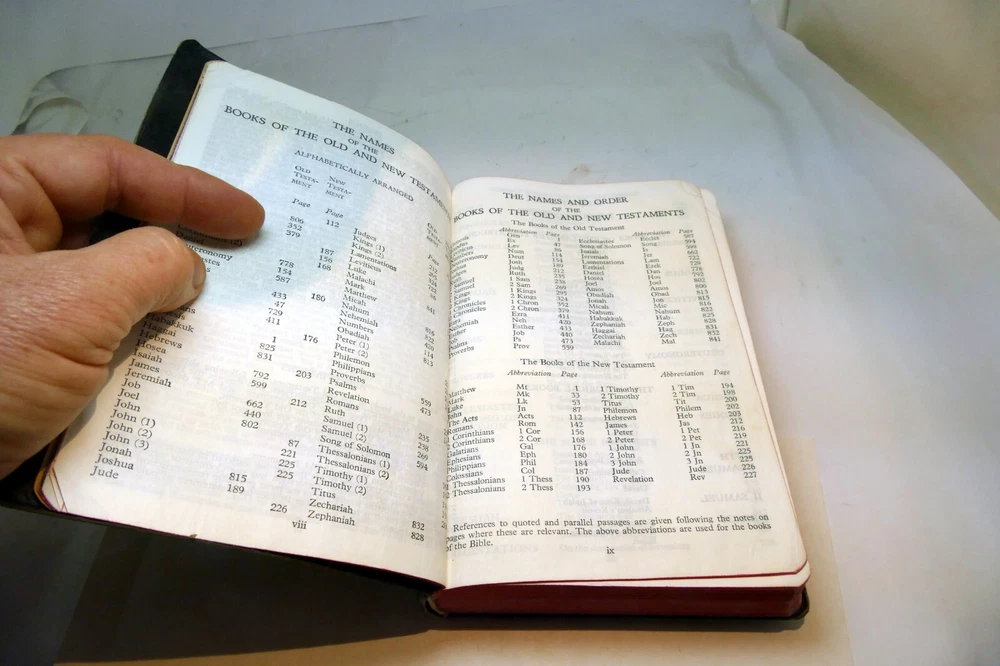 THE NAMES
OF THE
BOOKS OF THE OLD AND NEW TESTAM
ALPHABETICALLY ARRANGED
OLD TESTA-MENT
NEW TESTA-MENT
Page Page
806 112
352
379
187
778 156
154 168
587
433 180
47
729
411
1 176
825
831
792 203
599
662 212
440
802
87
221
225
815 225
189
226
Habakkuk
Haggai
Hebrews
Hosea
Isaiah
James
Jeremiah
Job
Joel
John
John (1)
John (2)
John (3)
Jonah
Joshua
Jude
Judges
Kings (1)
Kings (2)
Lamentations
Leviticus
Luke
Malachi
Mark
Matthew
Micah
Nahum
Nehemiah
Numbers
Obadiah
Peter (1)
Peter (2)
Philemon
Philippians
Proverbs
Psalms
Revelation
Romans
Ruth
Samuel (1)
Samuel (2)
Song of Solomon
Thessalonians (1)
Thessalonians (2)
Timothy (1)
Timothy (2)
Titus
Zechariah
Zephaniah
559
473
235
238
269
594
832
828
viii
THE NAMES AND ORDER
OF THE
BOOKS OF THE OLD AND NEW TESTAMENTS
The Books of the Old Testament
Abbreviation Page Abbreviation Page
Gen 1 Ecclesiastes Eccles 587
Ex 47 Song of Solomon Song 594
Lev Isaiah Is
Num 114 Jeremiah Jer 662
Deut 154 Lamentations Lam 722
Josh Ezekiel Ezek 729
Judg 212 Daniel Dan 778
Ruth 235 Hosea Hos 792
1 Sam 238 Joel Joel 802
2 Sam 269 Amos Amos 806
1 Kings 295 Obadiah Obad 813
2 Kings 324 Jonah Jon 815
1 Chron 352 Micah Mic 816
2 Chron 379 Nahum Nahum 822
Ezra 411 Habakkuk Hab 825
Neh 420 Zephaniah Zeph 828
Esther 433 Haggai Hag 831
Job 440 Zechariah Zech 832
Psalms Ps 473 Malachi Mal 841
Proverbs Prov 559
The Books of the New Testament
Abbreviation Page Abbreviation Page
Matthew Mt 1 1 Timothy 1 Tim 194
Mark Mk 33 2 Timothy 2 Tim 198
Luke Lk 53 Titus Tit 200
John Jn 87 Philemon Philem 202
The Acts Acts 112 Hebrews Heb 203
Romans Rom 142 James Jas 212
1 Corinthians 1 Cor 156 1 Peter 1 Pet 216
2 Corinthians 2 Cor 168 2 Peter 2 Pet 219
Galatians Gal 176 1 John 1 Jn 221
Ephesians Eph 180 2 John 2 Jn 225
Philippians Phil 184 3 John 3 Jn 225
Colossians Col 187 Jude Jude 226
1 Thessalonians 1 Thess 190 Revelation Rev 227
2 Thessalonians 2 Thess 193
References to quoted and parallel passages are given following the notes on
pages where these are relevant. The above abbreviations are used for the books
of the Bible.
ix